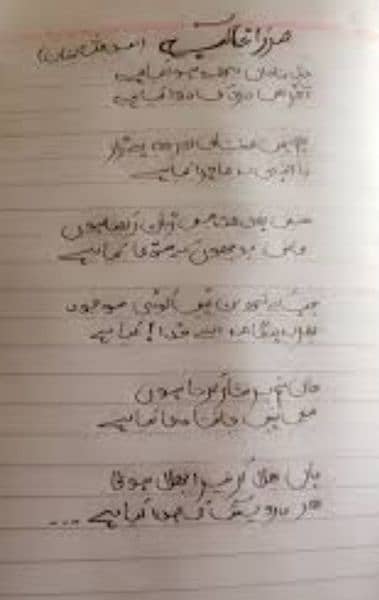 مرزا غالب (اسد اللہ خان)
دل ناداں تجھے ہوا کیا ہے
آخر اس درد کی دوا کیا ہے
ہم ہیں مشتاق اور وہ بیزار
یا الہی یہ ماجرا کیا ہے
میں بھی منہ میں زبان رکھتا ہوں
کاش پوچھو کہ مدعا کیا ہے
جب کہ تجھ بن نہیں کوئی موجود
پھر یہ ہنگامہ اے خدا کیا ہے
جان تم پر نثار کرتا ہوں
میں نہیں جانتا دعا کیا ہے
ہاں بھلا کر ترا بھلا ہوگا
اور درویش کی صدا کیا ہے ...